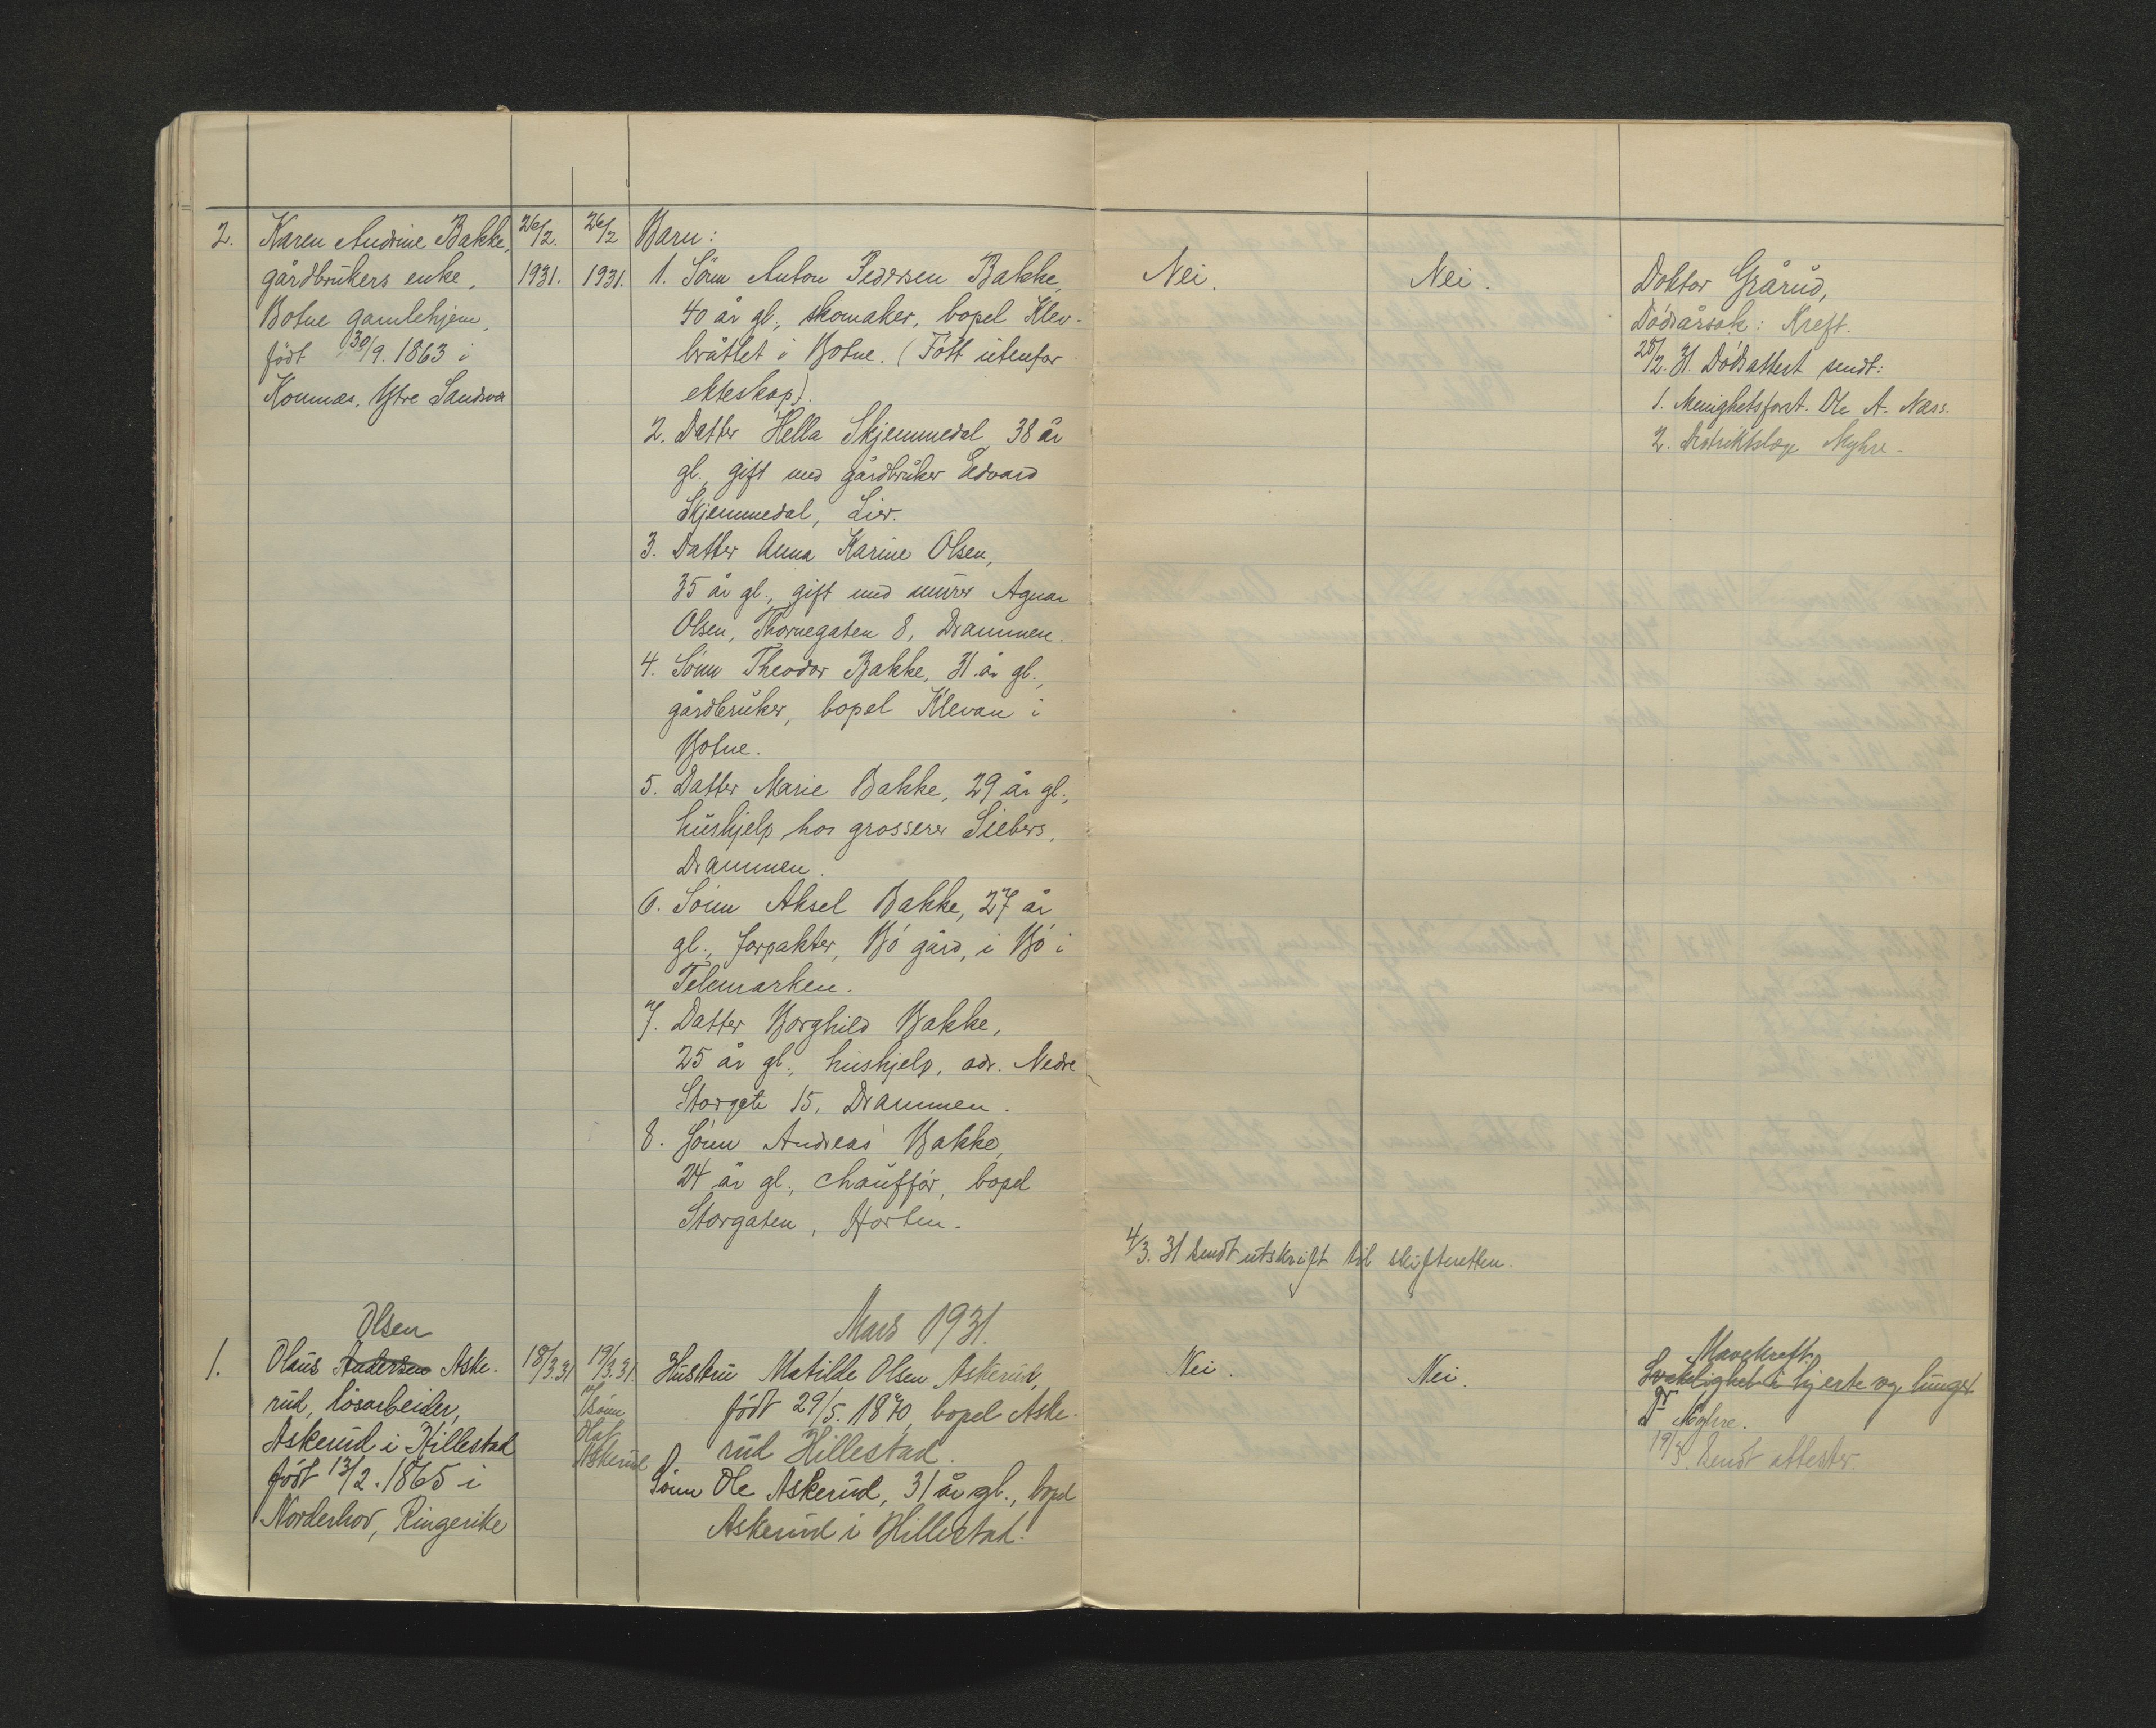 2.
Karen Andrine Bakke,
gårdbrukers enke,
Botne gamlehjem,
født 30/9. 1863 i
Komnæs, Ytre Sandsvær
26/2.
1931.
26/2
1931.
Barn:
1. Sønn Anton Pedersen Bakke,
40 år gl., skomaker, bopel Klev-
bråttet i Botne. (Født utenfor
ekteskap).
2. Datter Hella Skjemmedal, 38 år
gl., gift med gårdbruker Edvard
Skjemmedal, Lier.
3. Datter Anna Karine Olsen,
35 år gl., gift med murer Agnar
Olsen, Thornegaten 8, Drammen.
4. Sønn Theodor Bakke, 31 år gl.,
gårdbruker, bopel Klevan i
Botne.
5. Datter Marie Bakke, 29 år gl.,
hushjelp hos grosserer Siebers,
Drammen.
6. Sønn Aksel Bakke, 27 år
gl., forpakter, Bø gård, i Bø i
Telemarken.
7. Datter Borghild Bakke,
25 år gl., hushjelp, adr. Nedre
Storgate 15, Drammen.
8. Sønn Andreas Bakke,
24 år gl., chauffør, bopel
Storgaten, Horten.
Nei.
Nei.
Doktor Grårud,
Dødsårsak: Kreft.
28/2. 31. Dødsattest sendt:
1. Menighetsforst. Ole A. Næss.
2. Distriktslæge Myhre.
4/3. 31 sendt utskrift til skifteretten.
Mars 1931.
1.
Olsen
Olaus Andersen Aske-
rud, løsarbeider,
Askerud i Hillestad
født 13/2. 1865 i
Norderhov, Ringerike
18/3.31
19/3.31.
sønn
Olaf
Askerud
Hustru Matilde Olsen Askerud,
født 29/5. 1870, bopel Aske-
rud Hillestad.
Sønn Ole Askerud, 31 år gl., bopel
Askerud i Hillestad.
Nei.
Nei.
Mavekreft.
Svakelighet i hjerte og lunger
Dr Myhre.
19/3. Sendt attester.